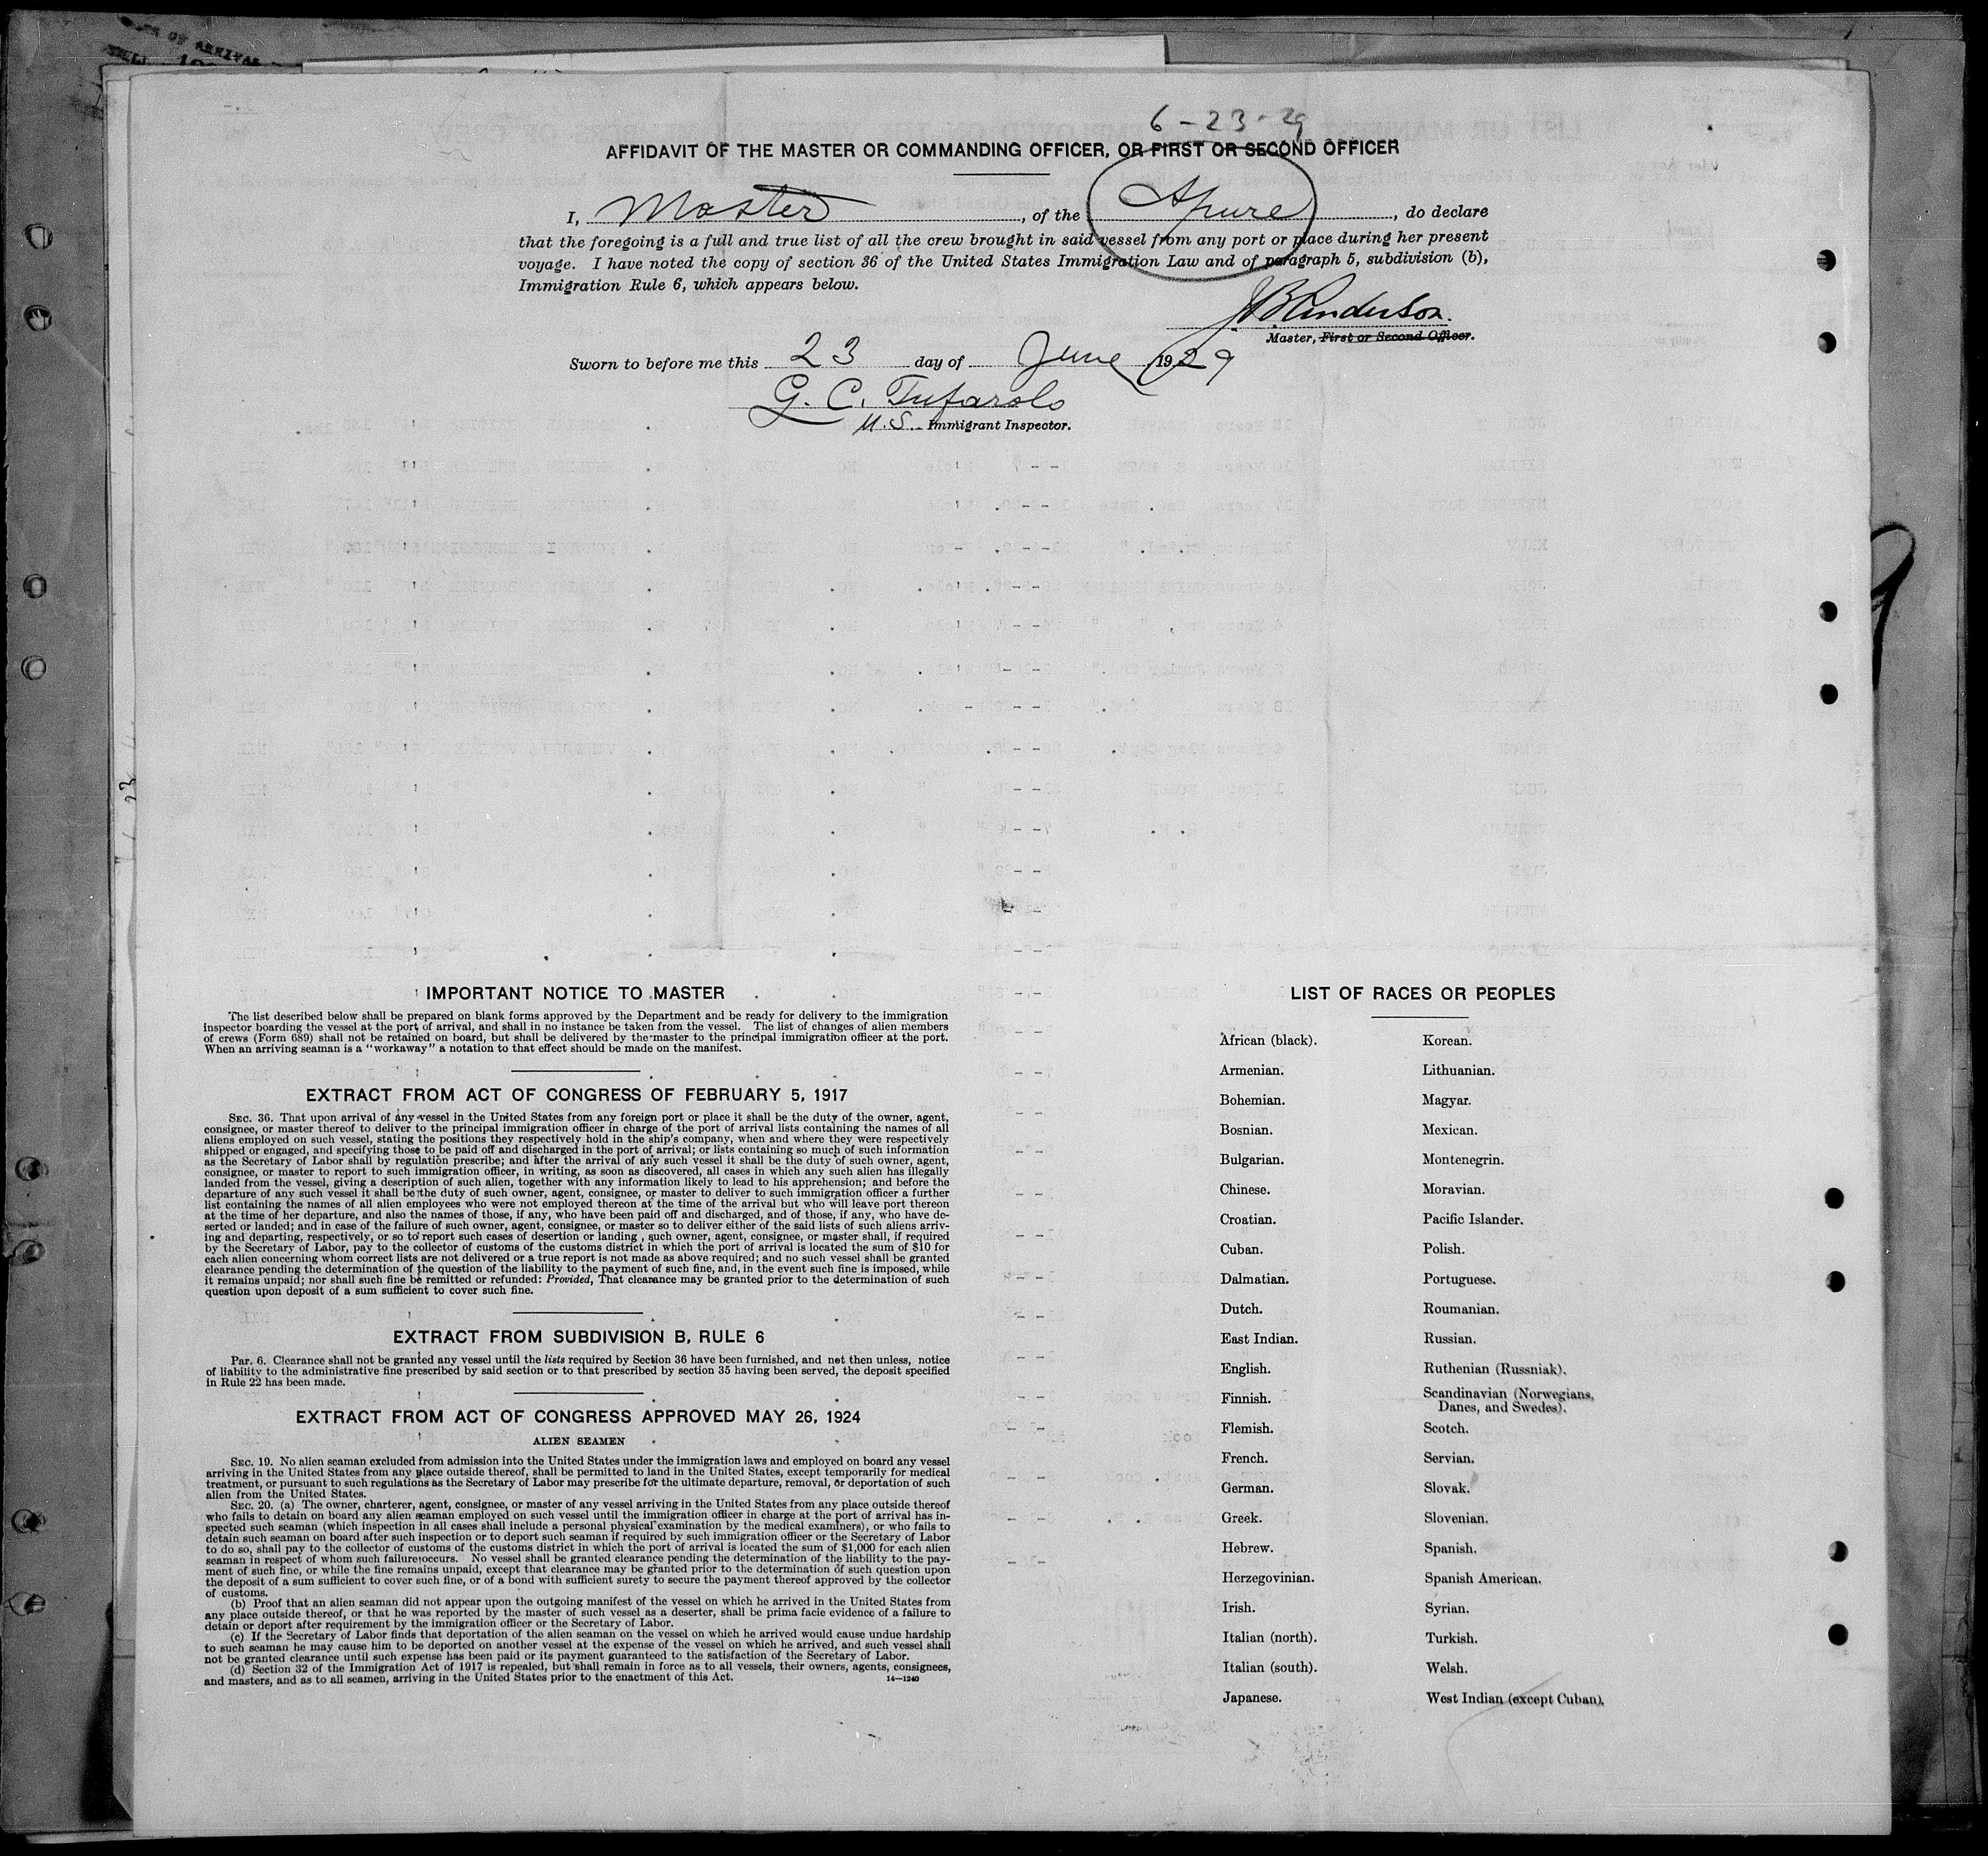 6-23-29
AFFIDAVIT OF THE MASTER OR COMMANDING OFFICER, OR FIRST OR SECOND OFFICER
I, Master, of the Apure, do declare
that the foregoing is a full and true list of all the crew brought in said vessel from any port or place during her present
voyage. I have noted the copy of section 36 of the United States Immigration Law and of paragraph 5, subdivision (b),
Immigration Rule 6, which appears below.
Master, First or Second Officer.
Sworn to before me this 23 day of June 1929
G. C. Tufarolo
U.S. Immigrant Inspector.
IMPORTANT NOTICE TO MASTER
The list described below shall be prepared on blank forms approved by the Department and be ready for delivery to the immigration
inspector boarding the vessel at the port of arrival, and shall in no instance be taken from the vessel. The list of changes of alien members
of crews (Form 689) shall not be retained on board, but shall be delivered by the master to the principal immigration officer at the port.
When an arriving seaman is a "workaway" a notation to that effect should be made on the manifest.
EXTRACT FROM ACT OF CONGRESS OF FEBRUARY 5, 1917
SEC. 36. That upon arrival of any vessel in the United States from any foreign port or place it shall be the duty of the owner, agent,
consignee, or master thereof to deliver to the principal immigration officer in charge of the port of arrival lists containing the names of all
aliens employed on such vessel, stating the positions they respectively hold in the ship's company, when and where they were respectively
shipped or engaged, and specifying those to be paid off and discharged in the port of arrival; or lists containing so much of such information
as the Secretary of Labor shall by regulation prescribe; and after the arrival of any such vessel it shall be the duty of such owner, agent,
consignee, or master to report to such immigration officer, in writing, as soon as discovered, all cases in which any such alien has illegally
landed from the vessel, giving a description of such alien, together with any information likely to lead to his apprehension; and before the
departure of any such vessel it shall be the duty of such owner, agent, consignee, or master to deliver to such immigration officer a further
list containing the names of all alien employees who were not employed thereon at the time of the arrival but who will leave port thereon
at the time of her departure, and also the names of those, if any, who have been paid off and discharged, and of those, if any, who have de-
serted or landed; and in case of the failure of such owner, agent, consignee, or master so to deliver either of the said lists of such aliens arriv-
ing and departing, respectively, or so to report such cases of desertion or landing, such owner, agent, consignee, or master shall, if required
by the Secretary of Labor, pay to the collector of customs of the customs district in which the port of arrival is located the sum of $10 for
each alien concerning whom correct lists are not delivered or a true report is not made as above required; and no such vessel shall be granted
clearance pending the determination of the question of the liability to the payment of such fine, and, in the event such fine is imposed, while
it remains unpaid; nor shall such fine be remitted or refunded: Provided, That clearance may be granted prior to the determination of such
question upon deposit of a sum sufficient to cover such fine.
EXTRACT FROM SUBDIVISION B, RULE 6
Par. 6. Clearance shall not be granted any vessel until the lists required by Section 36 have been furnished, and not then unless, notice
of liability to the administrative fine prescribed by said section or to that prescribed by section 35 having been served, the deposit specified
in Rule 22 has been made.
EXTRACT FROM ACT OF CONGRESS APPROVED MAY 26, 1924
ALIEN SEAMEN
SEC. 19. No alien seaman excluded from admission into the United States under the immigration laws and employed on board any vessel
arriving in the United States from any place outside thereof, shall be permitted to land in the United States, except temporarily for medical
treatment, or pursuant to such regulations as the Secretary of Labor may prescribe for the ultimate departure, removal, or deportation of such
alien from the United States.
SEC. 20. (a) The owner, charterer, agent, consignee, or master of any vessel arriving in the United States from any place outside thereof
who fails to detain on board any alien seaman employed on such vessel until the immigration officer in charge at the port of arrival has in-
spected such seaman (which inspection in all cases shall include a personal physical examination by the medical examiners), or who fails to
detain such seaman on board after such inspection or to deport such seaman if required by such immigration officer or the Secretary of Labor
to do so, shall pay to the collector of customs of the customs district in which the port of arrival is located the sum of $1,000 for each alien
seaman in respect of whom such failure occurs. No vessel shall be granted clearance pending the determination of the liability to the pay-
ment of such fine, or while the fine remains unpaid, except that clearance may be granted prior to the determination of such question upon
the deposit of a sum sufficient to cover such fine, or of a bond with sufficient surety to secure the payment thereof approved by the collector
of customs.
(b) Proof that an alien seaman did not appear upon the outgoing manifest of the vessel on which he arrived in the United States from
any place outside thereof, or that he was reported by the master of such vessel as a deserter, shall be prima facie evidence of a failure to
detain or deport after requirement by the immigration officer or the Secretary of Labor.
(c) If the Secretary of Labor finds that deportation of the alien seaman on the vessel on which he arrived would cause undue hardship
to such seaman he may cause him to be deported on another vessel at the expense of the vessel on which he arrived, and such vessel shall
not be granted clearance until such expense has been paid or its payment guaranteed to the satisfaction of the Secretary of Labor.
(d) Section 32 of the Immigration Act of 1917 is repealed, but shall remain in force as to all vessels, their owners, agents, consignees,
and masters, and as to all seamen, arriving in the United States prior to the enactment of this Act. 14—1240
LIST OF RACES OR PEOPLES
African (black). Korean.
Armenian. Lithuanian.
Bohemian. Magyar.
Bosnian. Mexican.
Bulgarian. Montenegrin.
Chinese. Moravian.
Croatian. Pacific Islander.
Cuban. Polish.
Dalmatian. Portuguese.
Dutch. Roumanian.
East Indian. Russian.
English. Ruthenian (Russniak).
Finnish. Scandinavian (Norwegians,
Danes, and Swedes).
Flemish. Scotch.
French. Servian.
German. Slovak.
Greek. Slovenian.
Hebrew. Spanish.
Herzegovinian. Spanish American.
Irish. Syrian.
Italian (north). Turkish.
Italian (south). Welsh.
Japanese. West Indian (except Cuban).